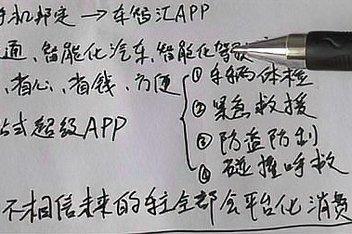 手机绑定 → 车智汇APP
通、智能化汽车、智能化驾驶
、省心、省钱、方便
① 车辆体检
② 紧急救援
③ 防盗防利
④ 碰撞呼救
式超级APP
不相信未来的车全部会平台化消费